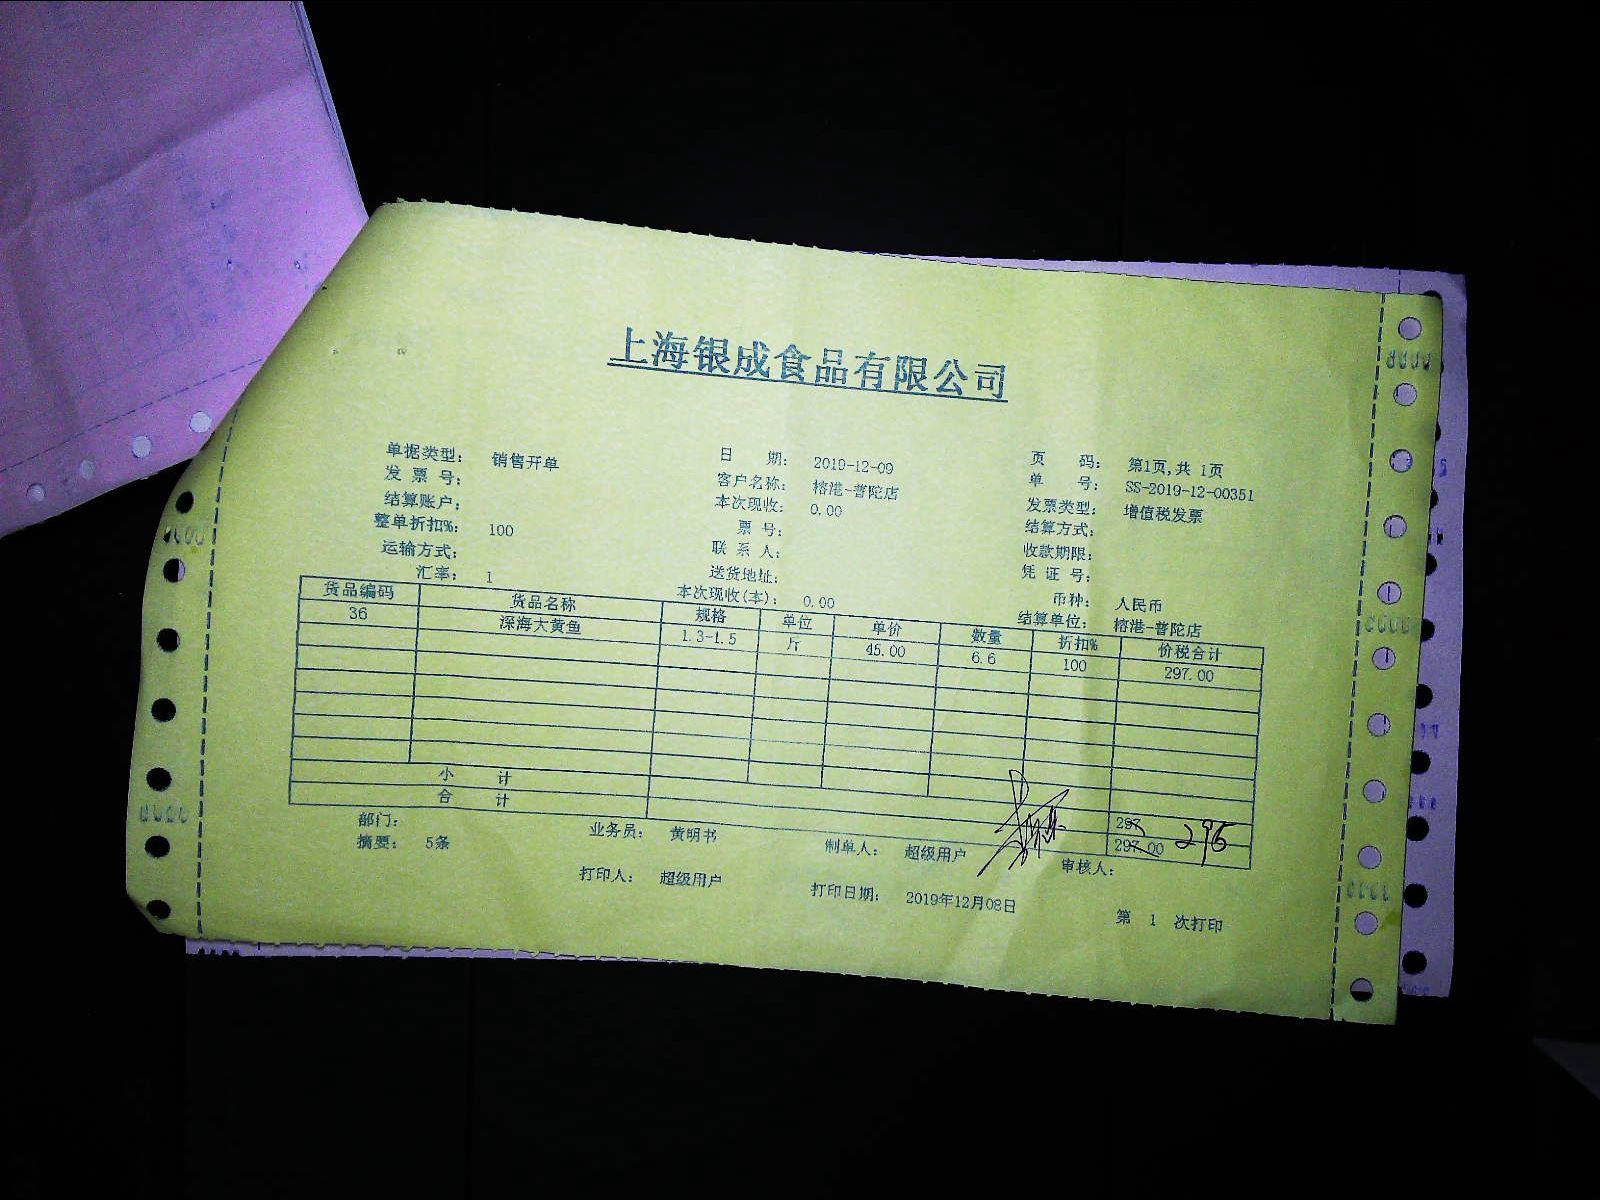 上海银成食品有限公司
单据类型： 销售开单 日 期： 2019-12-09 页 码： 第1页,共 1页
发 票 号： 客户名称： 榕港-普陀店 单 号： SS-2019-12-00351
结算账户： 本次现收： 0.00 发票类型： 增值税发票
整单折扣%： 100 票 号： 结算方式：
运输方式： 联 系 人： 收款期限：
汇率： 1 送货地址： 凭 证 号：
本次现收(本)： 0.00 币种： 人民币
结算单位： 榕港-普陀店
货品编码 货品名称 规格 单位 单价 数量 折扣% 价税合计
36 深海大黄鱼 1.3-1.5 斤 45.00 6.6 100 297.00
小 计 297
合 计 297.00 296
部门： 业务员： 黄明书 制单人： 超级用户 审核人：
摘要： 5条
打印人： 超级用户 打印日期： 2019年12月08日 第 1 次打印